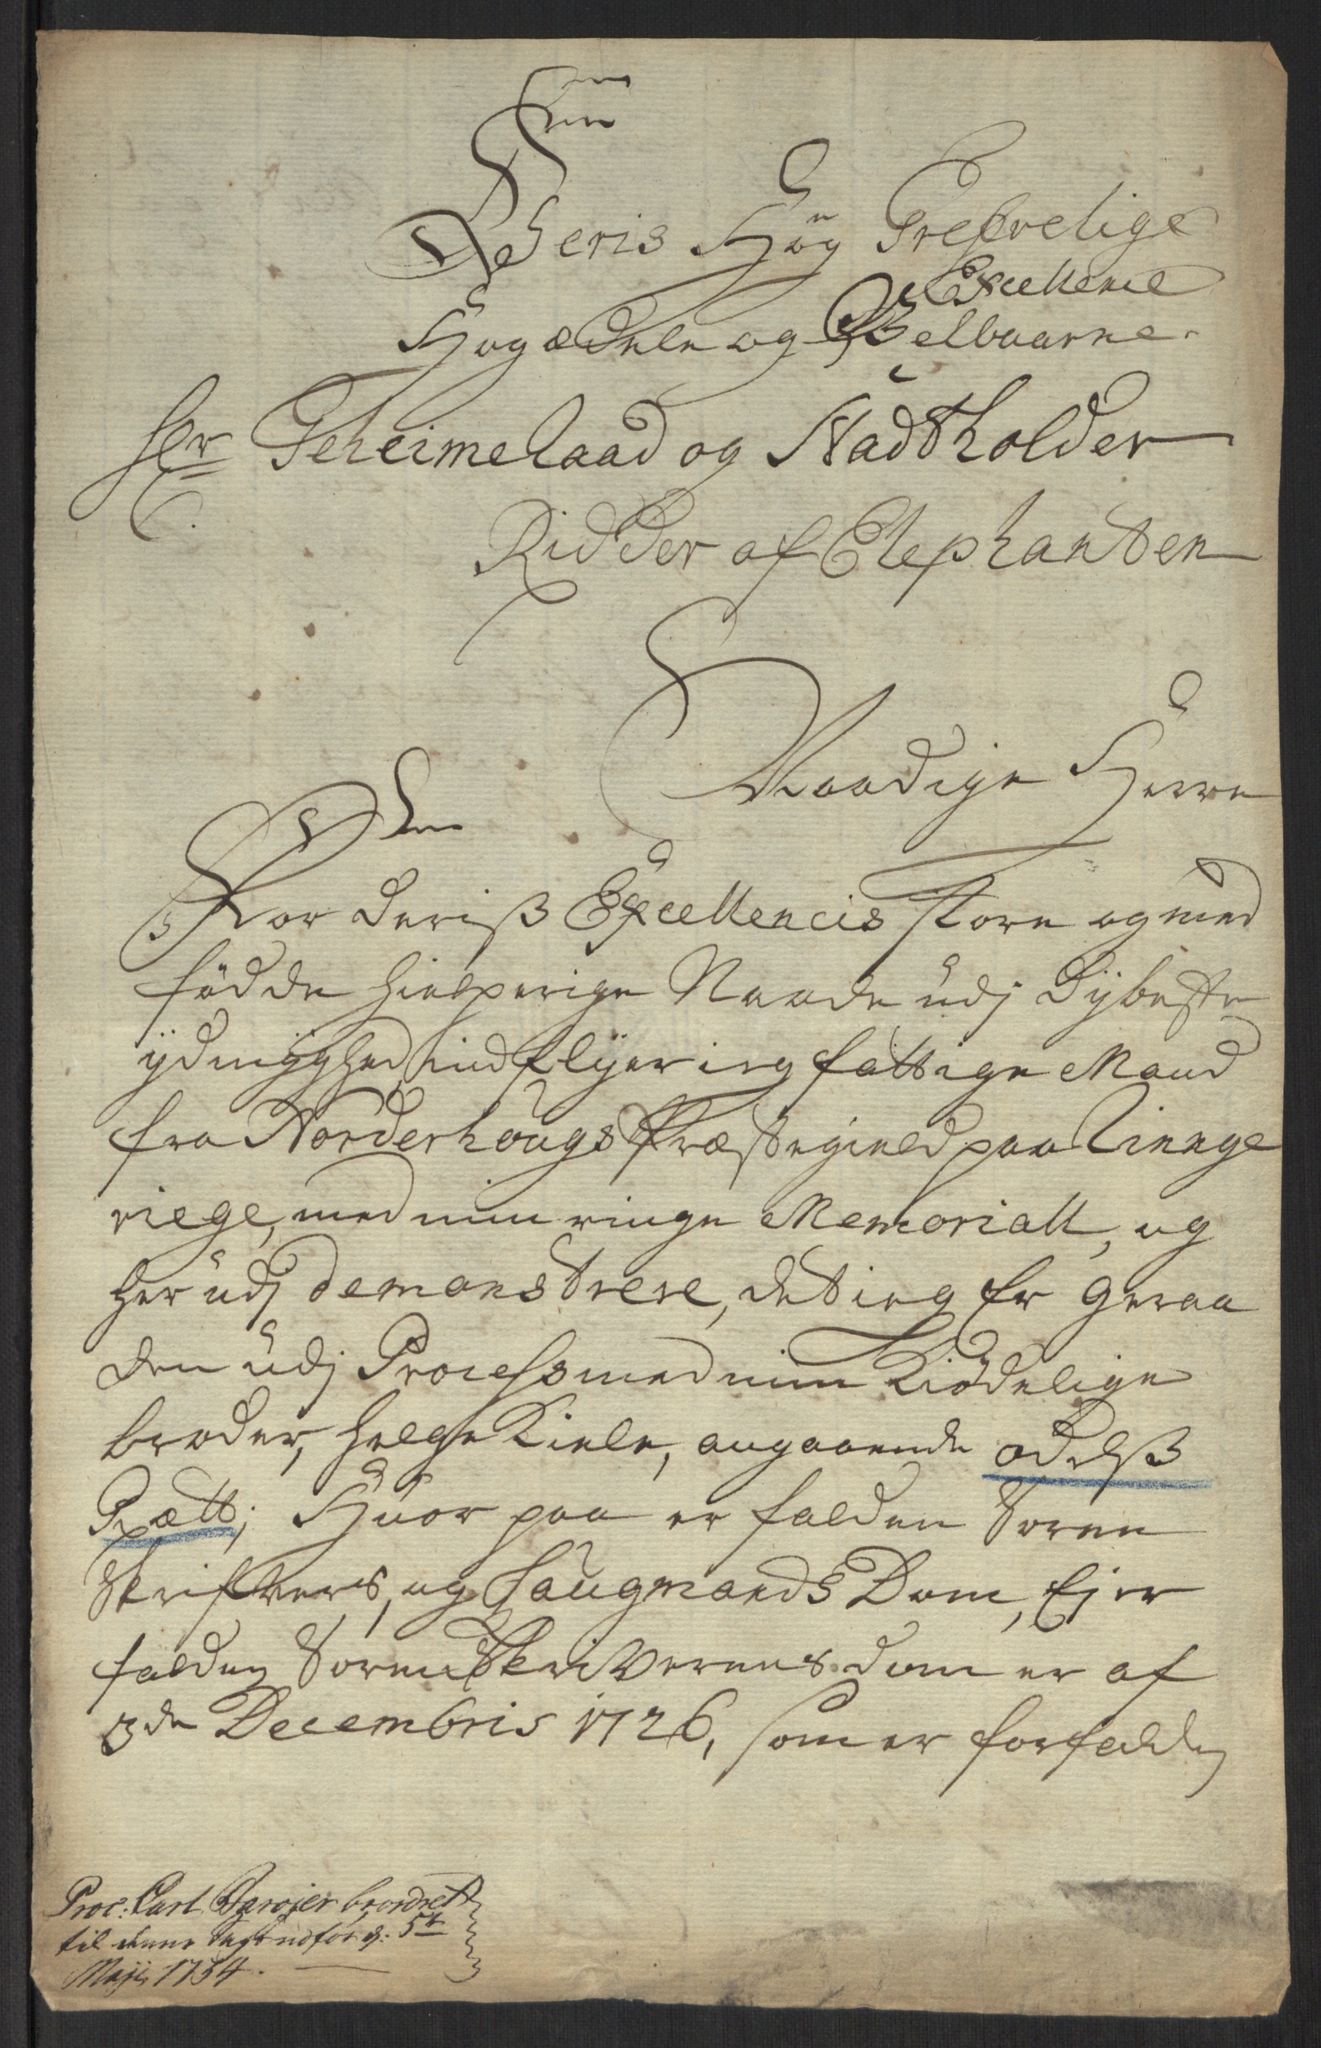 Deris Høy Grefvelige
Excellence
Høyædele og Velbaarne
Hr Geheimeraad og Stadtholder
Ridder af Elephanten
Naadige Herre
For deriß Excellencis store og med
fødde hielperige Naade udj dybeste
ydmyghed indflyer ieg fattige Mand
fra Norderhougs Præstegield paa Ringe
riege, med min ringe Memoriall, og
her udj demonstrere, det ieg Er geraa
den udj Process med min Kiødelige
broder, Helge Kiele, angaaende odelß
Rætt; Huor paa er falden Soren
Skrifvers, og Laugmands Dom, Ej er
falden Sorenskriverens dom er af
3de Decembris 1726, som er forfalden
Proc: Carl beordret
til denne Sags udfør d: 5te
Maji 1734.